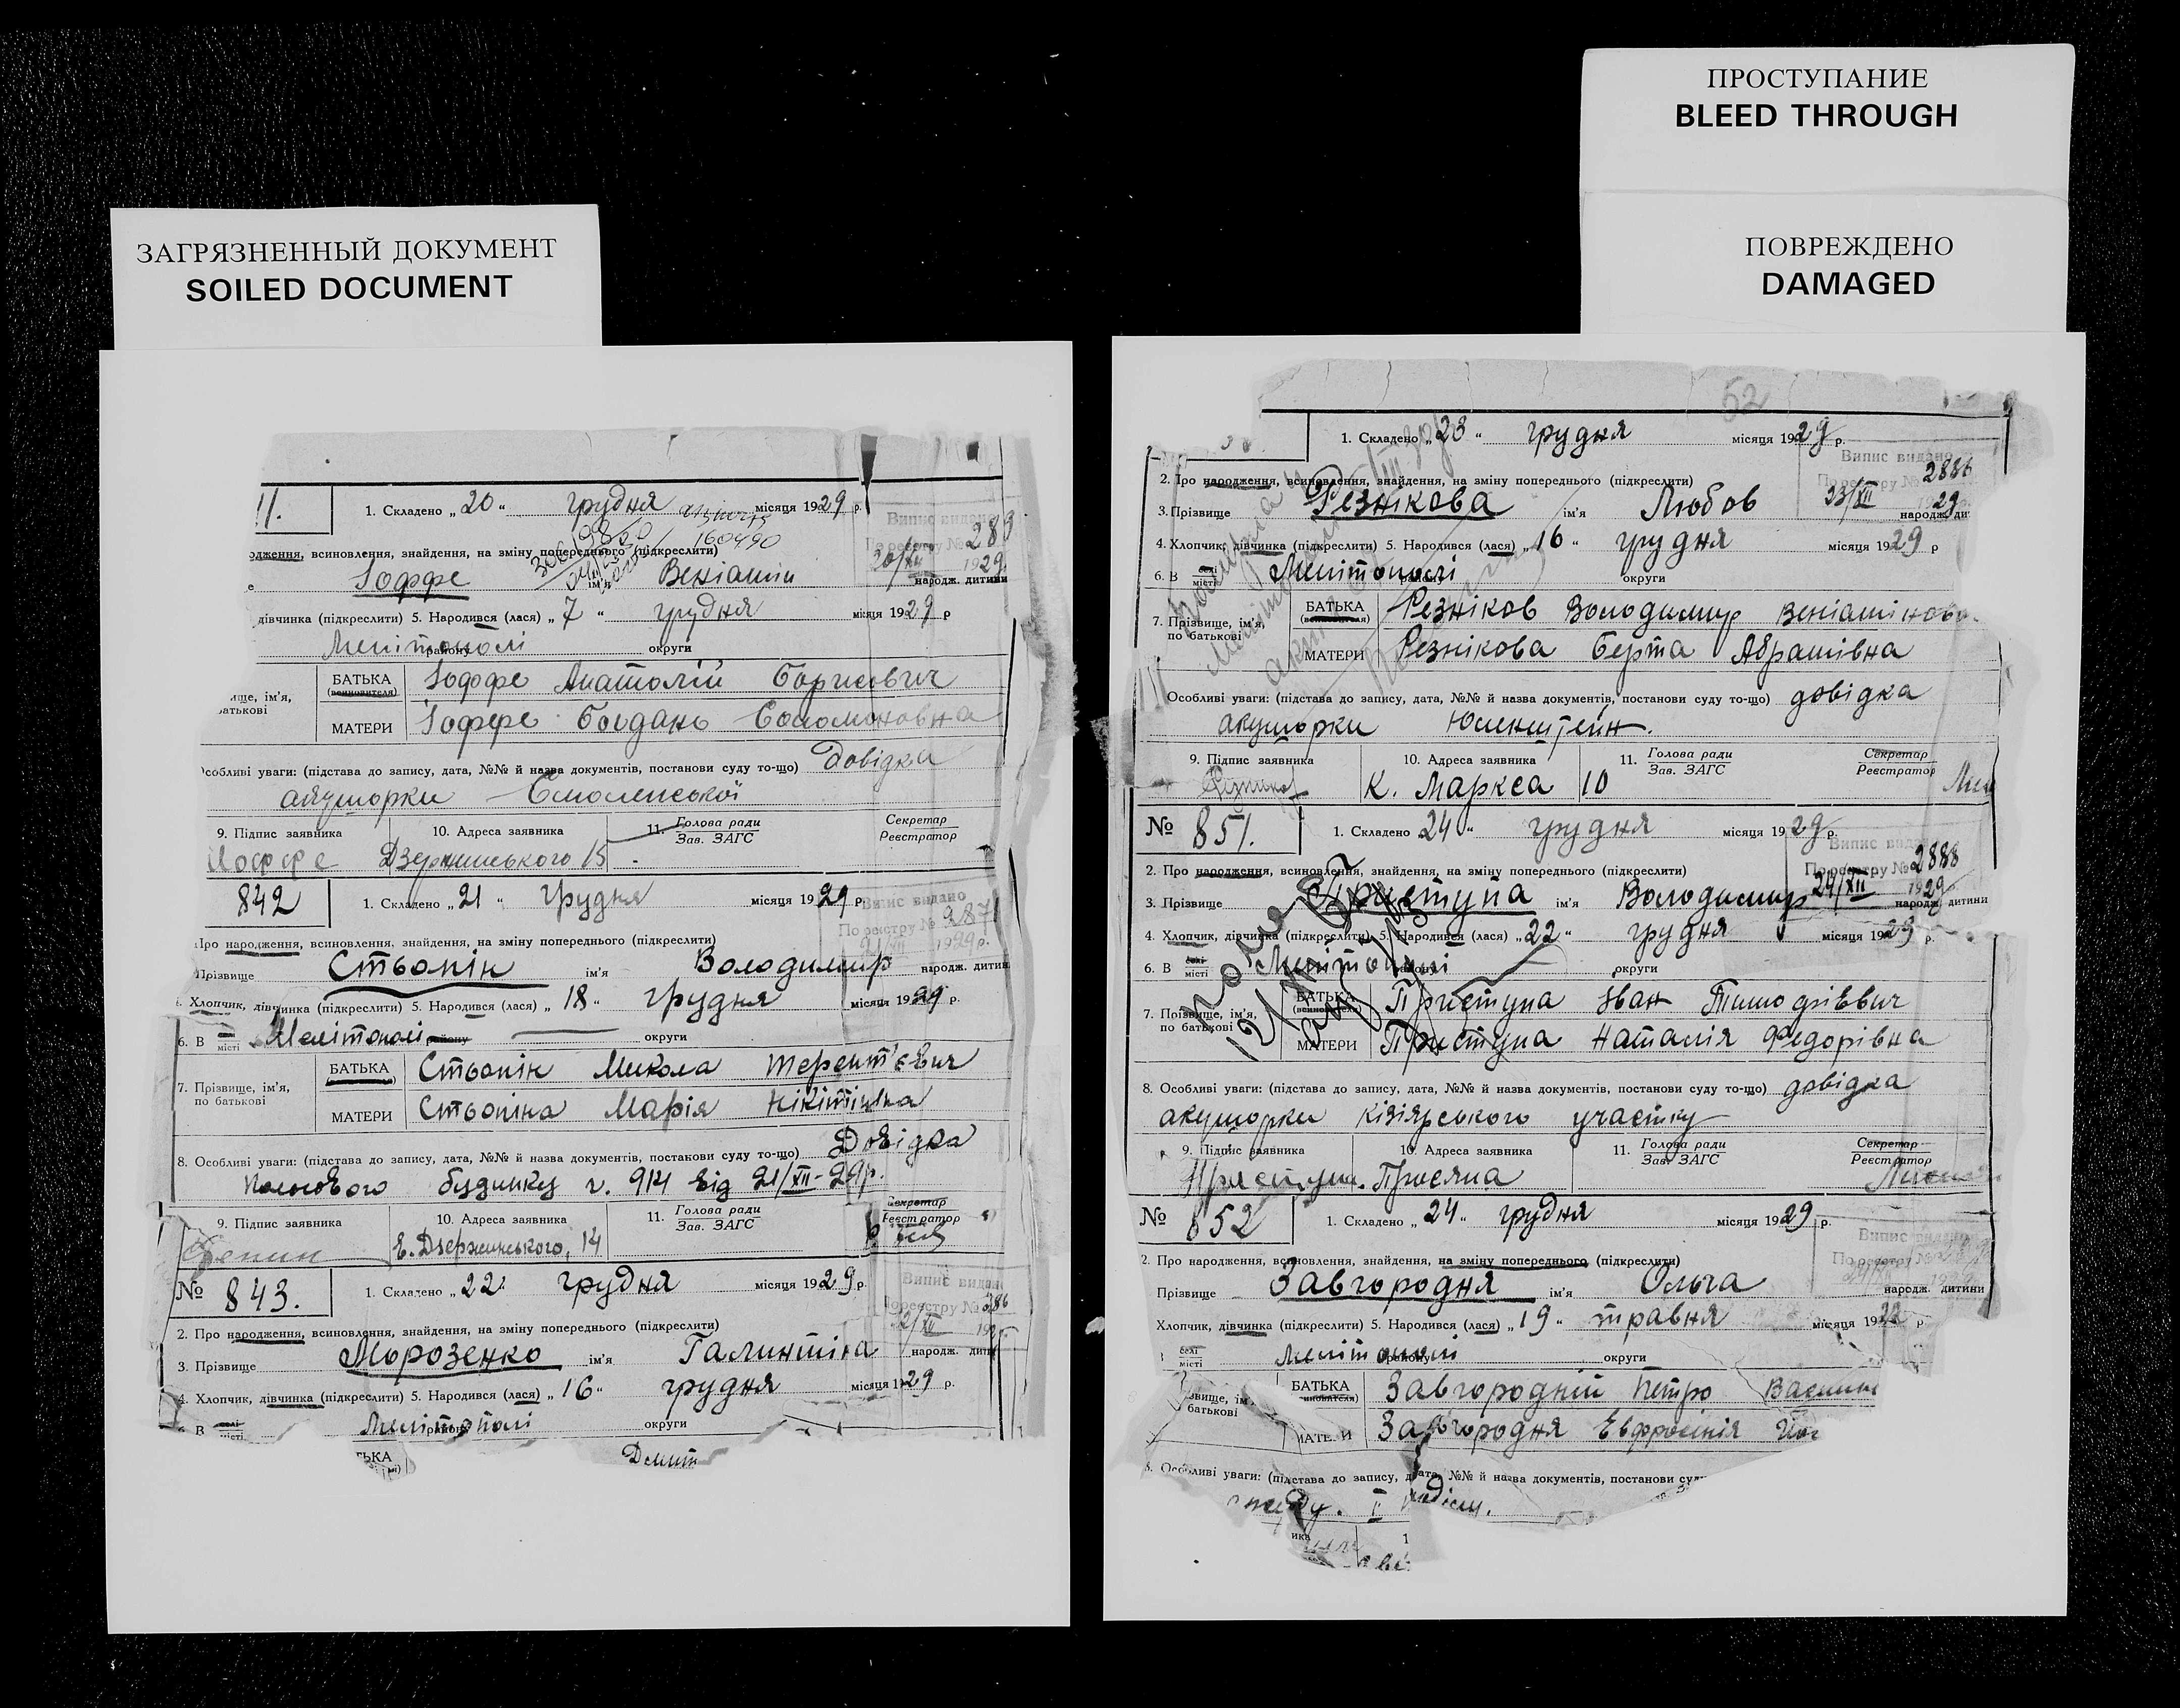 ЗАГРЯЗНЕННЫЙ ДОКУМЕНТ
SOILED DOCUMENT
1. Складено „ 20 “ грудня місяця 1929 р.
Випис видано
По реєстру № 289
20/XII 1929
160490
одження, всиновлення, знайдення, на зміну попереднього (підкреслити)
Іоффе ім'я Веніамін народж. дитини
дівчинка (підкреслити) 5. Народився (лася) „ 7 “ грудня місяця 1929 р
Мелітополі району округи
ище, ім'я,
батькові
БАТЬКА Іоффе Анатолій Борисович
(всиновителя)
МАТЕРИ Іоффе Соломоновна
Особливі уваги: (підстава до запису, дата, №№ й назва документів, постанови суду то-що) Довідка
акушорки Смоленської
9. Підпис заявника 10. Адреса заявника 11. Голова ради Зав. ЗАГС Секретар Реєстратор
Иоффе Дзержинського 15
842 1. Складено „ 21 “ грудня місяця 1929 р.
Випис видано
По реєстру № 2871
21/XII 1929 р.
Про народження, всиновлення, знайдення, на зміну попереднього (підкреслити)
Прізвище Стьопін ім'я Володимир народж. дитин
Хлопчик, дівчинка (підкреслити) 5. Народився (лася) „ 18 “ грудня місяця 1929 р.
6. В місті Мелітополі району округи
7. Прізвище, ім'я,
по батькові
БАТЬКА Стьопін Микола Терент'євич
МАТЕРИ Стьопіна Марія Нікітішна
8. Особливі уваги: (підстава до запису, дата, №№ й назва документів, постанови суду то-що) Довідка
Пологового будинку ч. 914 від 21/XII-29р.
9. Підпис заявника 10. Адреса заявника 11. Голова ради Зав. ЗАГС Секретар Реєстратор
Е. Дзержинського, 14
№ 843. 1. Складено „ 22 “ грудня місяця 1929 р.
Випис видано
По реєстру №
22/XII
2. Про народження, всиновлення, знайдення, на зміну попереднього (підкреслити)
3. Прізвище Морозенко ім'я Галинтіна народж. дити
4. Хлопчик, дівчинка (підкреслити) 5. Народився (лася) „ 16 “ грудня місяця 1929 р.
В місті Мелітополі району округи
ТЬКА Дмит
ПРОСТУПАНИЕ
BLEED THROUGH
ПОВРЕЖДЕНО
DAMAGED
52
1. Складено „ 23 “ грудня місяця 1929 р.
Випис видано
По реєстру № 2886
23/XII 1929
2. Про народження, всиновлення, знайдення, на зміну попереднього (підкреслити)
3. Прізвище Резнікова ім'я Любов народж. ди
4. Хлопчик, дівчинка (підкреслити) 5. Народився (лася) „ 16 “ грудня місяця 1929 р
6. В селі місті Мелітополі району округи
7. Прізвище, ім'я,
по батькові
БАТЬКА Резніков Володимир Веніамінови
(всиновителя)
МАТЕРИ Резнікова Берта Абрамівна
Особливі уваги: (підстава до запису, дата, №№ й назва документів, постанови суду то-що) довідка
акушорки Юсенштейн.
9. Підпис заявника 10. Адреса заявника 11. Голова ради Зав. ЗАГС Секретар Реєстратор
К. Маркса 10
№ 851. 1. Складено „ 24 “ грудня місяця 1929 р.
Випис видано
По реєстру № 2888
24/XII 1929
2. Про народження, всиновлення, знайдення, на зміну попереднього (підкреслити)
3. Прізвище Приступа ім'я Володимир народж. дитини
4. Хлопчик, дівчинка (підкреслити) 5. Народився (лася) „ 22 “ грудня місяця 1929 р.
6. В селі місті Мелітополі району округи
7. Прізвище, ім'я,
по батькові
БАТЬКА Приступа Іван Тимофієвич
(всиновителя)
МАТЕРИ Приступа Наталія Федорівна
8. Особливі уваги: (підстава до запису, дата, №№ й назва документів, постанови суду то-що) довідка
акушорки Кізіярського участку
9. Підпис заявника 10. Адреса заявника 11. Голова ради Зав. ЗАГС Секретар Реєстратор
Приступа.
№ 852 1. Складено „ 24 “ грудня місяця 1929 р.
Випис видано
По реєстру №
2. Про народження, всиновлення, знайдення, на зміну попереднього (підкреслити)
Прізвище Завгородня ім'я Ольга народж. дитини
Хлопчик, дівчинка (підкреслити) 5. Народився (лася) „ 19 “ травня місяця 1922 р
селі місті Мелітополі району округи
звище, ім'я
батькові
БАТЬКА Завгородній Петро
МАТЕРИ Завгородня Евфросінія
8. Особливі уваги: (підстава до запису, дата, №№ й назва документів, постанови суду